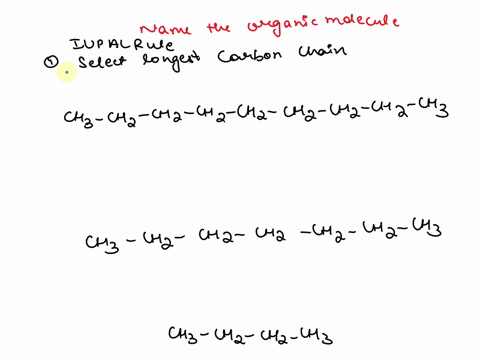 Name the organic molecule
IUPAC Rule
① Select longest Carbon Chain
CH3-CH2-CH2-CH2-CH2-CH2-CH2-CH2-CH3
CH3-CH2-CH2-CH2-CH2-CH2-CH3
CH3-CH2-CH2-CH3